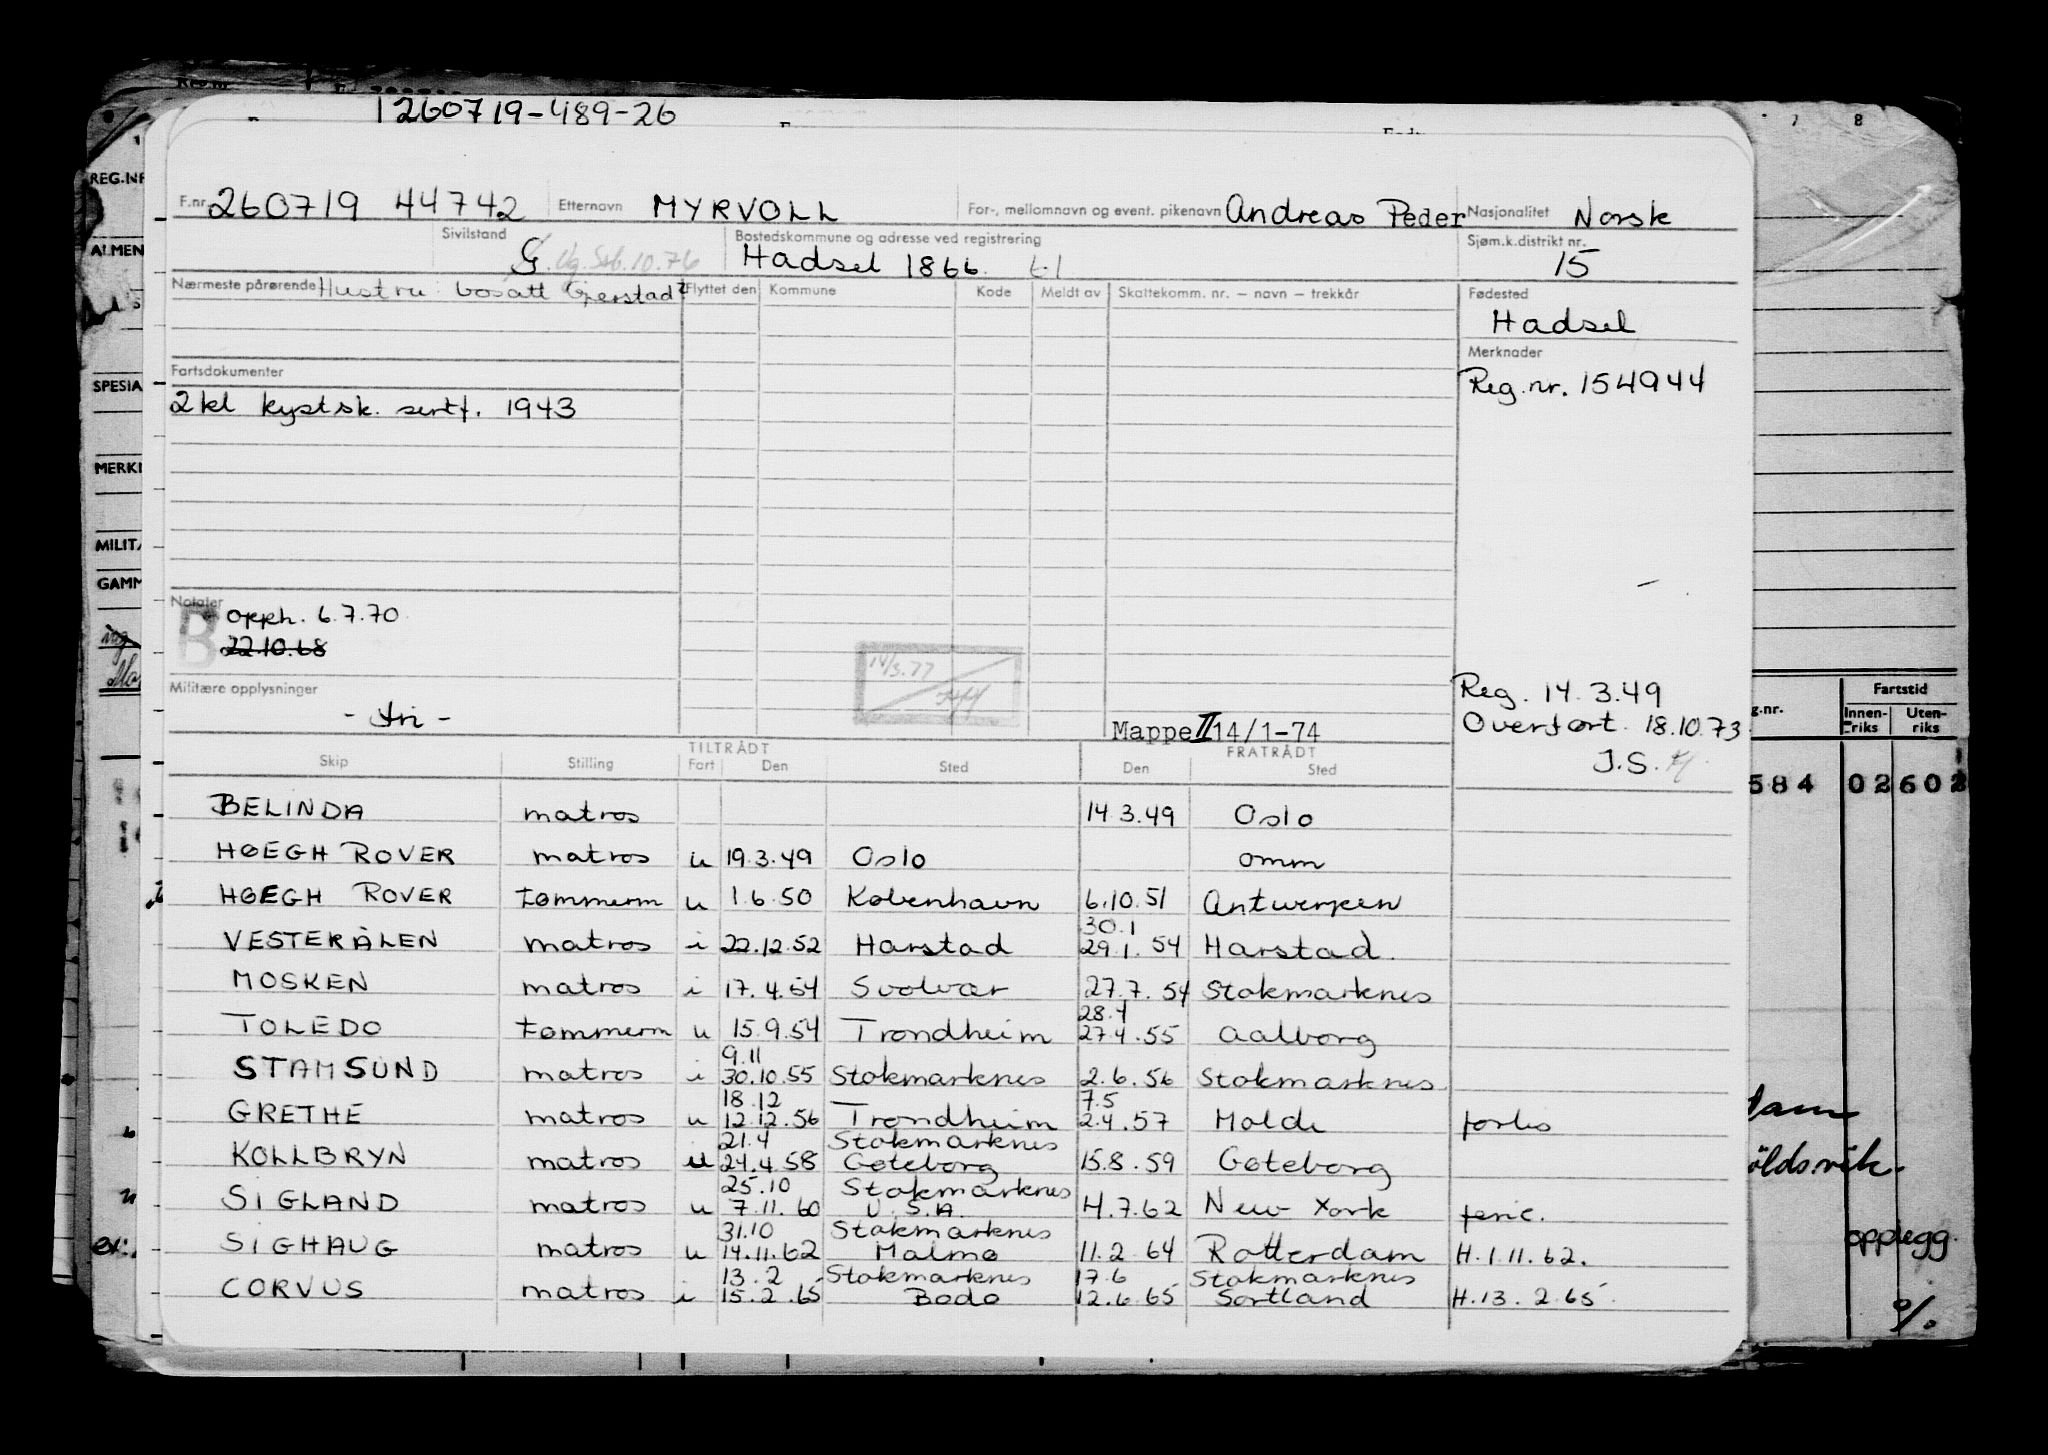 1260719-489-26
F.nr. 260719 44742 Etternavn MYRVOLL For-, mellomnavn og event. pikenavn Andreas Peder Nasjonalitet Norsk
Sivilstand G Bostedskommune og adresse ved registrering Hadsel 1866 Sjøm.k.distrikt nr. 15
Nærmeste pårørende Hustru bosatt Gjerstad Flyttet den Kommune Kode Meldt av Skattekomm. nr. – navn – trekkår Fødested
Hadsel
Merknader
Fartsdokumenter
Reg.nr. 154944
2kl kystsk. sertf. 1943
Notater
B opph. 6.7.70
22.10.68
14/3.77
Militære opplysninger
- fri -
Reg. 14.3.49
Overført. 18.10.73
J.S.
Mappe II 14/1-74
TILTRÅDT FRATRÅDT
Skip Stilling Fart Den Sted Den Sted
BELINDA matros 14.3.49 Oslo
HØEGH ROVER matros u 19.3.49 Oslo omm
HØEGH ROVER tømmerm u 1.6.50 København 6.10.51 Antwerpen
30.1
VESTERÅLEN matros i 22.12.52 Harstad 29.1.54 Harstad.
MOSKEN matros i 17.4.54 Svolvær 27.7.54 Stokmarknes
28.4
TOLEDO tømmerm u 15.9.54 Trondheim 27.4.55 Aalborg
9.11
STAMSUND matros i 30.10.55 Stokmarknes 2.6.56 Stokmarknes
18.12 7.5
GRETHE matros u 12.12.56 Trondheim 2.4.57 Molde forlis
21.4 Stokmarknes
KOLLBRYN matros u 24.4.58 Gøteborg 15.8.59 Gøteborg
25.10 Stokmarknes
SIGLAND matros u 7.11.60 U.S.A. 4.7.62 New York ferie.
31.10 Stokmarknes
SIGHAUG matros u 14.11.62 Malmø 11.2.64 Rotterdam H.1.11.62.
13.2 Stokmarknes 17.6 Stokmarknes
CORVUS matros i 15.2.65 Bodø 12.6.65 Sortland H.13.2.65.
REG.NR
ALMEN
SPESIA
MERKI
MILITÆ
GAMM
7 8
Fartstid
g.nr. Innen-riks Uten-riks
584 02602
öldsvik.
opplegg.
%.